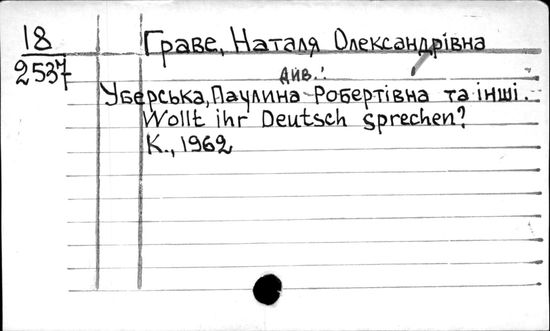 18
2537
Граве, Наталя Олександрівна
див.:
Уберська, Паулина Робертівна та інші.
Wollt ihr Deutsch sprechen?
К., 1962